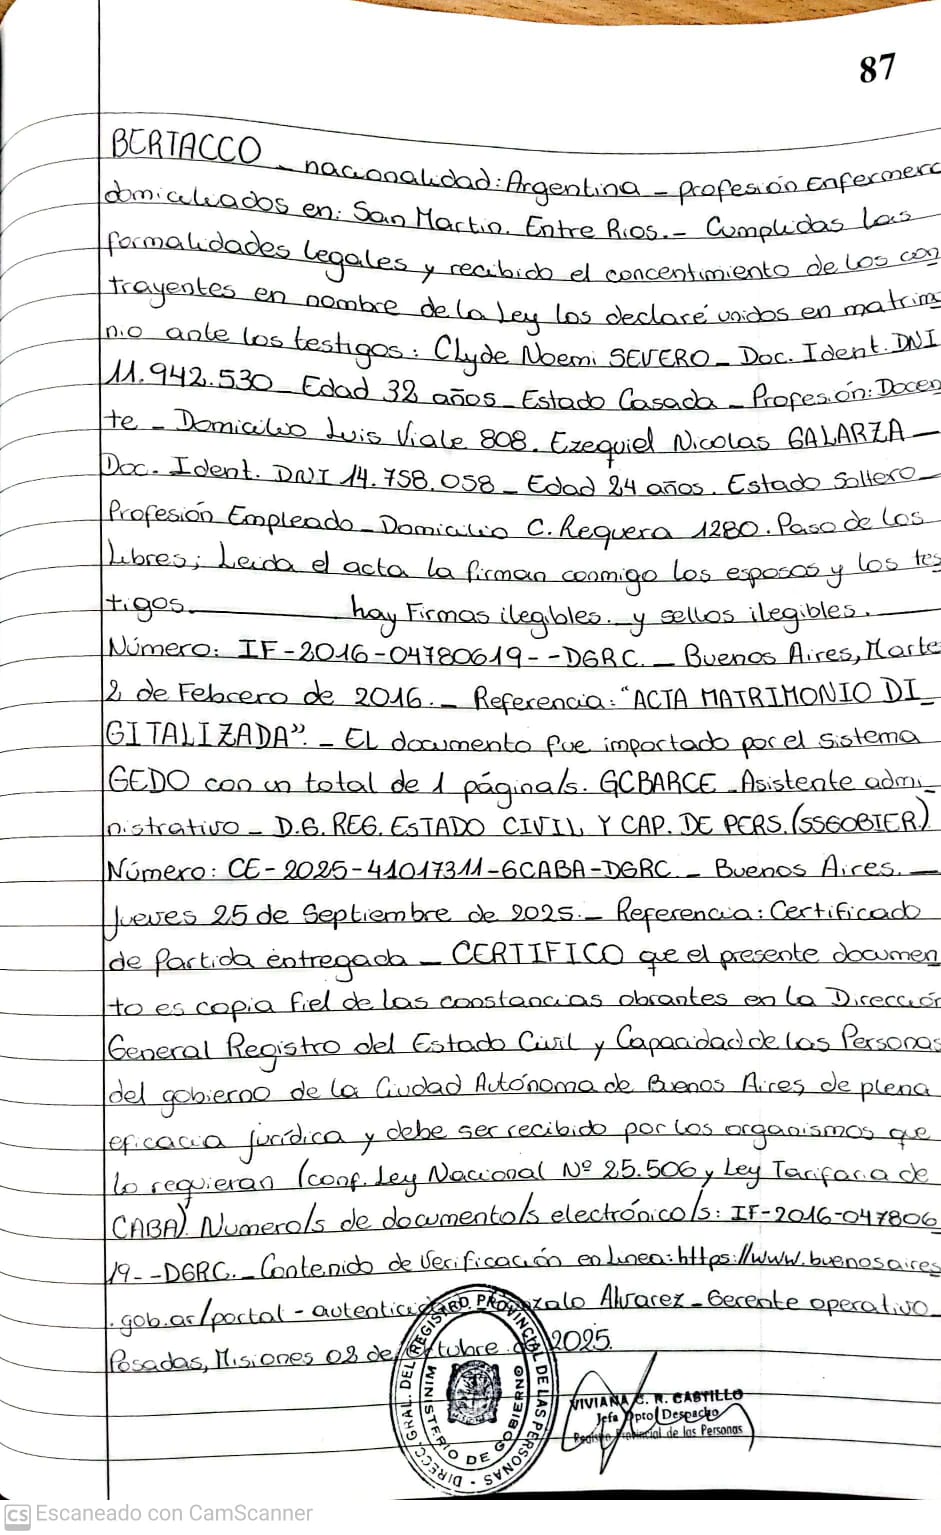 87
BERTACCO - nacionalidad: Argentina - Profesión Enfermera
domiciliados en: San Martin. Entre Rios.- Cumplidas las
formalidades legales y recibido el concentimiento de los con
trayentes en nombre de la Ley los declaré unidos en matrimo
nio ante los testigos: Clyde Noemi SEVERO - Doc. Ident. DNI
11.942.530 - Edad 32 años - Estado Casada - Profesión: Docen
te - Domicilio Luis Viale 808. Ezequiel Nicolas GALARZA -
Doc. Ident. DNI 14.758.058 - Edad 24 años. Estado Soltero -
Profesión Empleado - Domicilio C. Requera 1280. Paso de los
Libres; Leida el acta la firman conmigo los esposos y los tes
tigos. hay Firmas ilegibles. y sellos ilegibles.
Número: IF-2016-04780619--DGRC. - Buenos Aires, Marte
2 de Febrero de 2016. - Referencia: "ACTA MATRIMONIO DI
GITALIZADA". - EL documento fue importado por el sistema
GEDO con un total de 1 página/s. GCBARCE - Asistente admi
nistrativo - D.G. REG. ESTADO CIVIL Y CAP. DE PERS. (SSGOBIER)
Número: CE-2025-41017311-GCABA-DGRC - Buenos Aires. -
Jueves 25 de Septiembre de 2025. - Referencia: Certificado
de Partida entregada - CERTIFICO que el presente documen
to es copia fiel de las constancias obrantes en la Dirección
General Registro del Estado Civil y Capacidad de las Personas
del gobierno de la Ciudad Autónoma de Buenos Aires, de plena
eficacia jurídica y debe ser recibido por los organismos que
lo requieran (conf. Ley Nacional Nº 25.506 y Ley Tarifaria de
CABA). Numero/s de documento/s electrónico/s: IF-2016-047806
19--DGRC. - Contenido de Verificación en Linea: https://www.buenosaires
.gob.ar/portal-autentici zalo Alvarez - Gerente operativo
Posadas, Misiones 02 de Octubre de 2025.
DIRECC. GRAL. DEL REGISTRO PROVINCIAL DE LAS PERSONAS
MINISTERIO DE GOBIERNO
VIVIANA C. R. CASTILLO
Jefa Dpto Despacho
Registro Provincial de las Personas
CS Escaneado con CamScanner